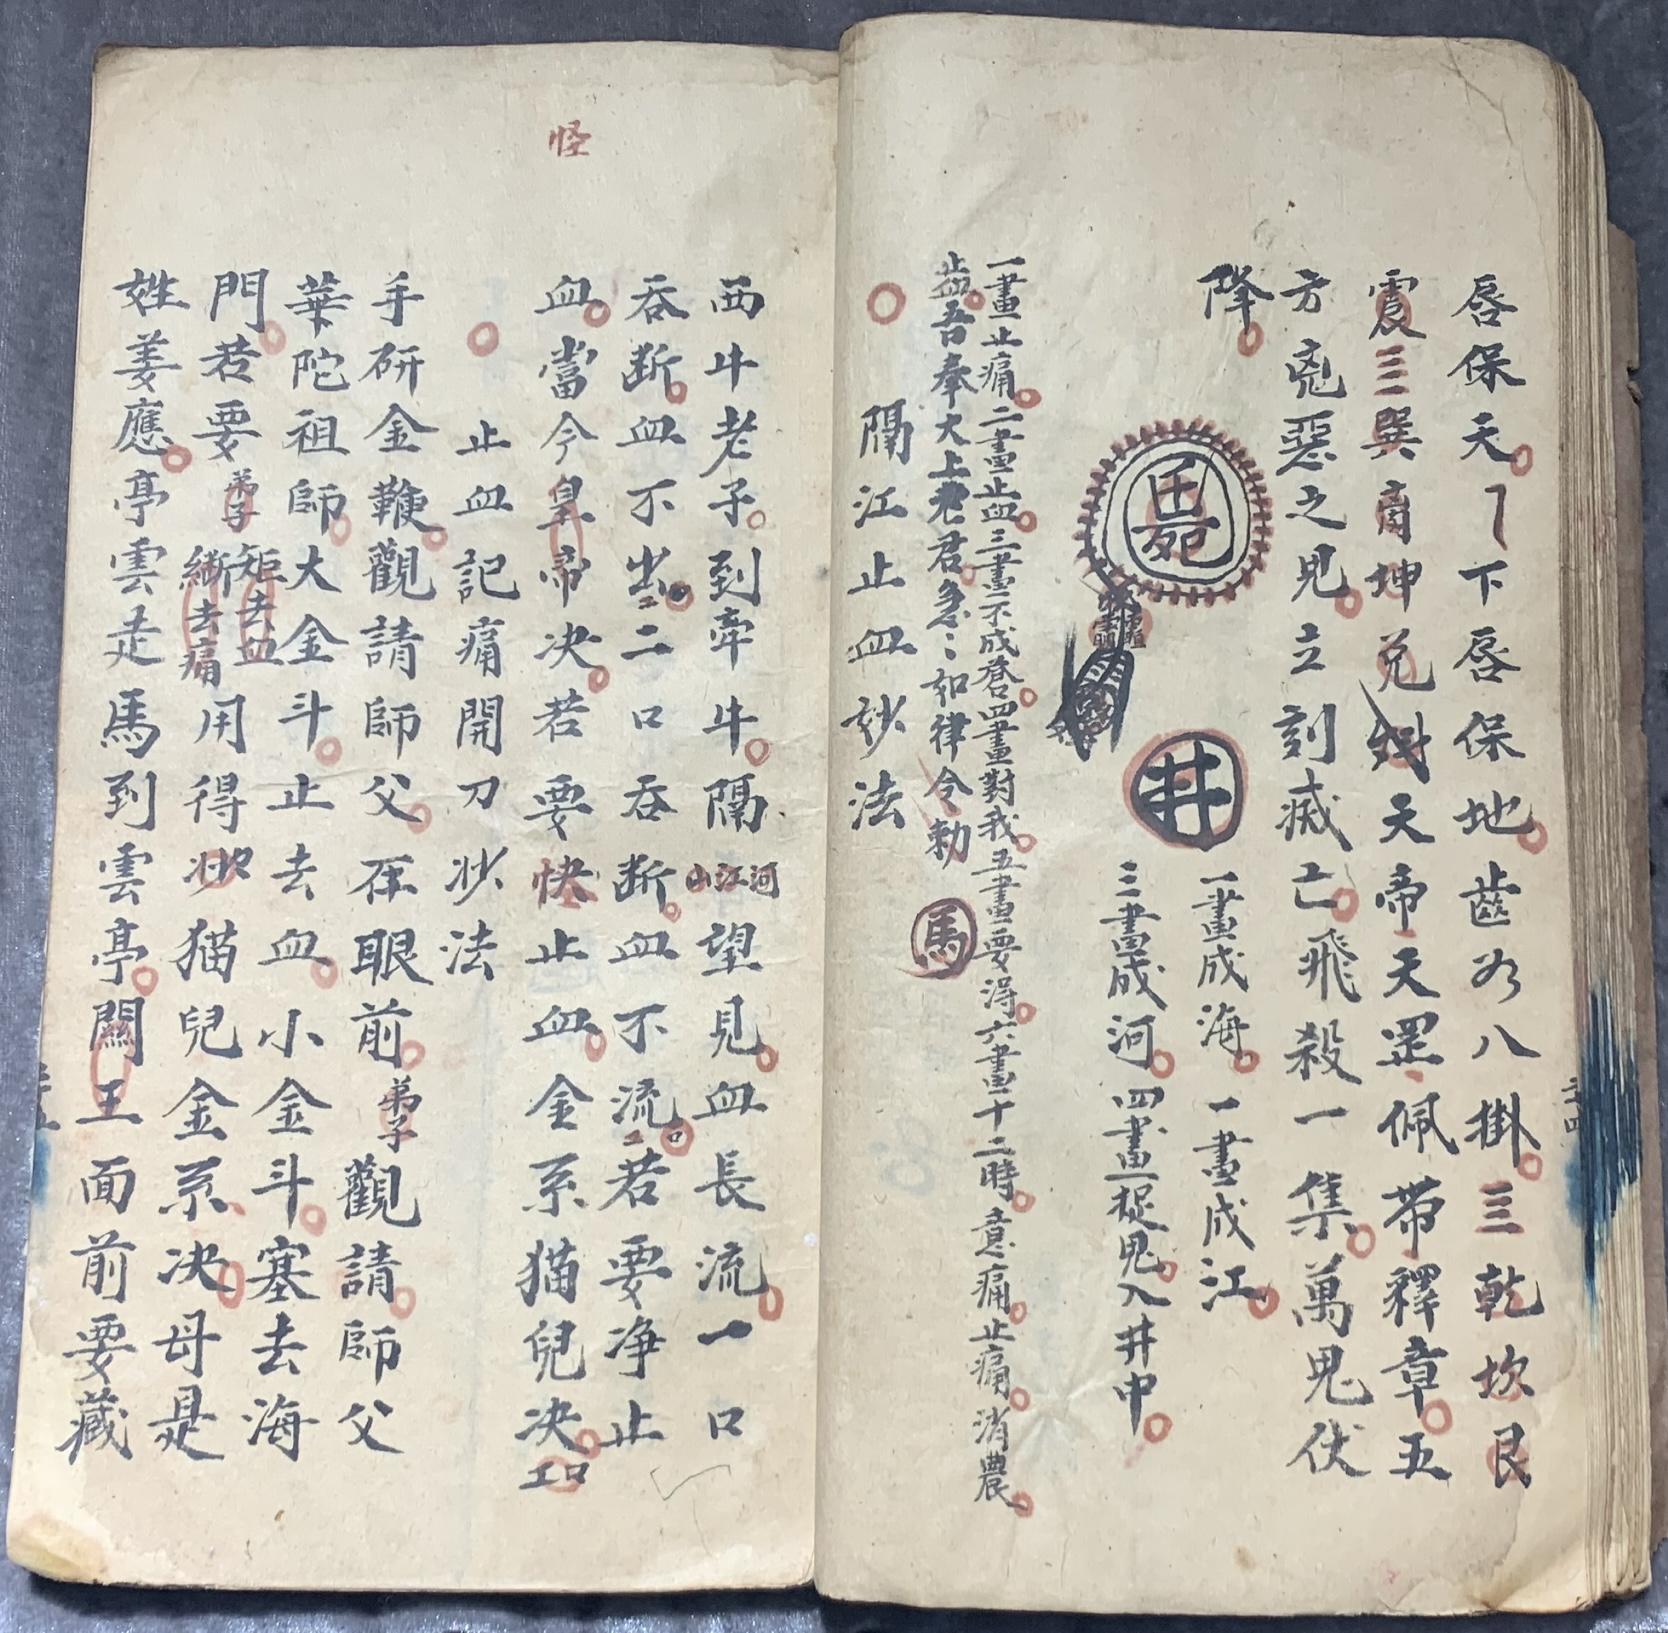 唇保天下唇保地齒為八掛三乾坎艮
震三巽离坤兌天帝天罡佩帶釋章五
方兇惡之鬼立刻滅亡飛殺一集萬鬼伏
降
井
一畫成海一畫成江
三畫成河四畫捉鬼入井中
一畫止痛二畫止血三畫不成瘡四畫對我五畫要得六畫十二時意痛止痛消農
止血吾奉太上老君急〻如律令勅
馬
隔江止血妙法
西牛老子到牽牛隔
山江河
望見血長流一口
吞断血不出二口吞断血不流若要净止
怪
血當今皇帝决若要快止血金系猫兒决
止血記痛開刀妙法
手研金鞭觀請師父在眼前弟子觀請師父
華陀祖師大金斗止去血小金斗塞去海
門若要弟子
矩去血
斷去痛
用得妙猫兒金系决母是
姓姜應亭雲走馬到雲亭關王面前要藏